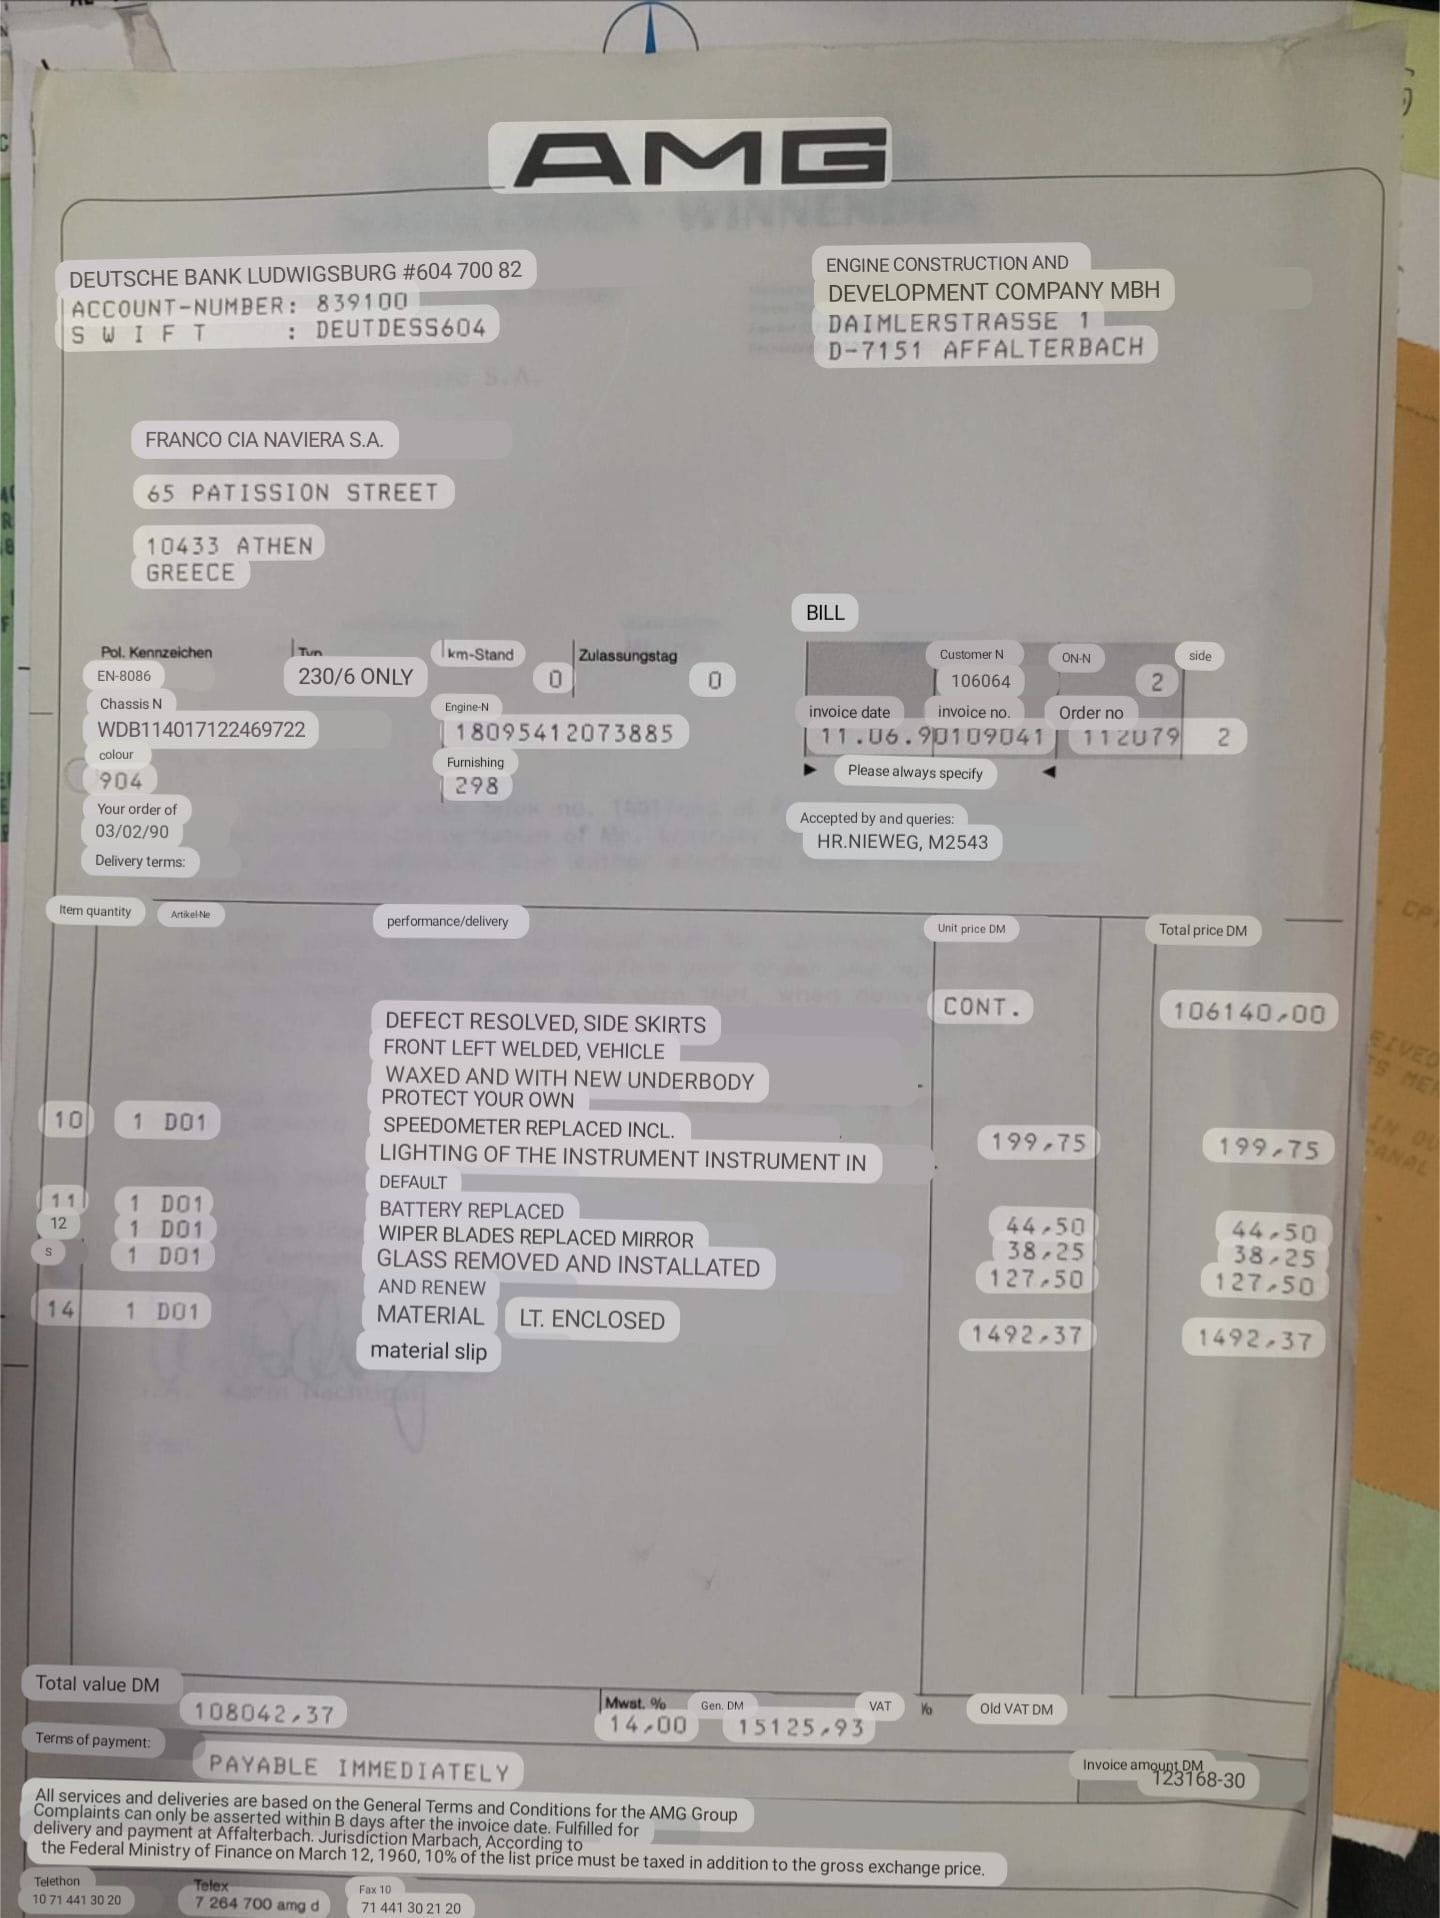 AMG
DEUTSCHE BANK LUDWIGSBURG #604 700 82
ACCOUNT-NUMBER: 839100
SWIFT : DEUTDESS604
ENGINE CONSTRUCTION AND
DEVELOPMENT COMPANY MBH
DAIMLERSTRASSE 1
D-7151 AFFALTERBACH
FRANCO CIA NAVIERA S.A.
65 PATISSION STREET
10433 ATHEN
GREECE
BILL
Pol. Kennzeichen Typ km-Stand Zulassungstag
EN-8086 230/6 ONLY 0 0
Customer N ON-N side
106064 2
Chassis N Engine-N
WDB114017122469722 18095412073885
invoice date invoice no. Order no
11.06.90109041 112079 2
colour Furnishing
904 298
Please always specify
Your order of
03/02/90
Accepted by and queries:
HR.NIEWEG, M2543
Delivery terms:
Item quantity Artikel-Ne performance/delivery Unit price DM Total price DM
CONT. 106140,00
DEFECT RESOLVED, SIDE SKIRTS
FRONT LEFT WELDED, VEHICLE
WAXED AND WITH NEW UNDERBODY
PROTECT YOUR OWN
10 1 D01 SPEEDOMETER REPLACED INCL. 199,75 199,75
LIGHTING OF THE INSTRUMENT INSTRUMENT IN
DEFAULT
11 1 D01 BATTERY REPLACED 44,50 44,50
12 1 D01 WIPER BLADES REPLACED MIRROR 38,25 38,25
S 1 D01 GLASS REMOVED AND INSTALLATED 127,50 127,50
AND RENEW
14 1 D01 MATERIAL LT. ENCLOSED 1492,37 1492,37
material slip
Total value DM Mwst. % Gen. DM VAT % Old VAT DM
108042,37 14,00 15125,93
Terms of payment:
PAYABLE IMMEDIATELY
Invoice amount DM
123168-30
All services and deliveries are based on the General Terms and Conditions for the AMG Group
Complaints can only be asserted within B days after the invoice date. Fulfilled for
delivery and payment at Affalterbach. Jurisdiction Marbach, According to
the Federal Ministry of Finance on March 12, 1960, 10% of the list price must be taxed in addition to the gross exchange price.
Telethon Telex Fax 10
10 71 441 30 20 7 264 700 amg d 71 441 30 21 20